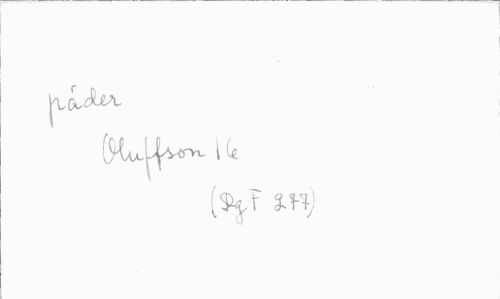 påder
Oluffson 16
(DgF 277)